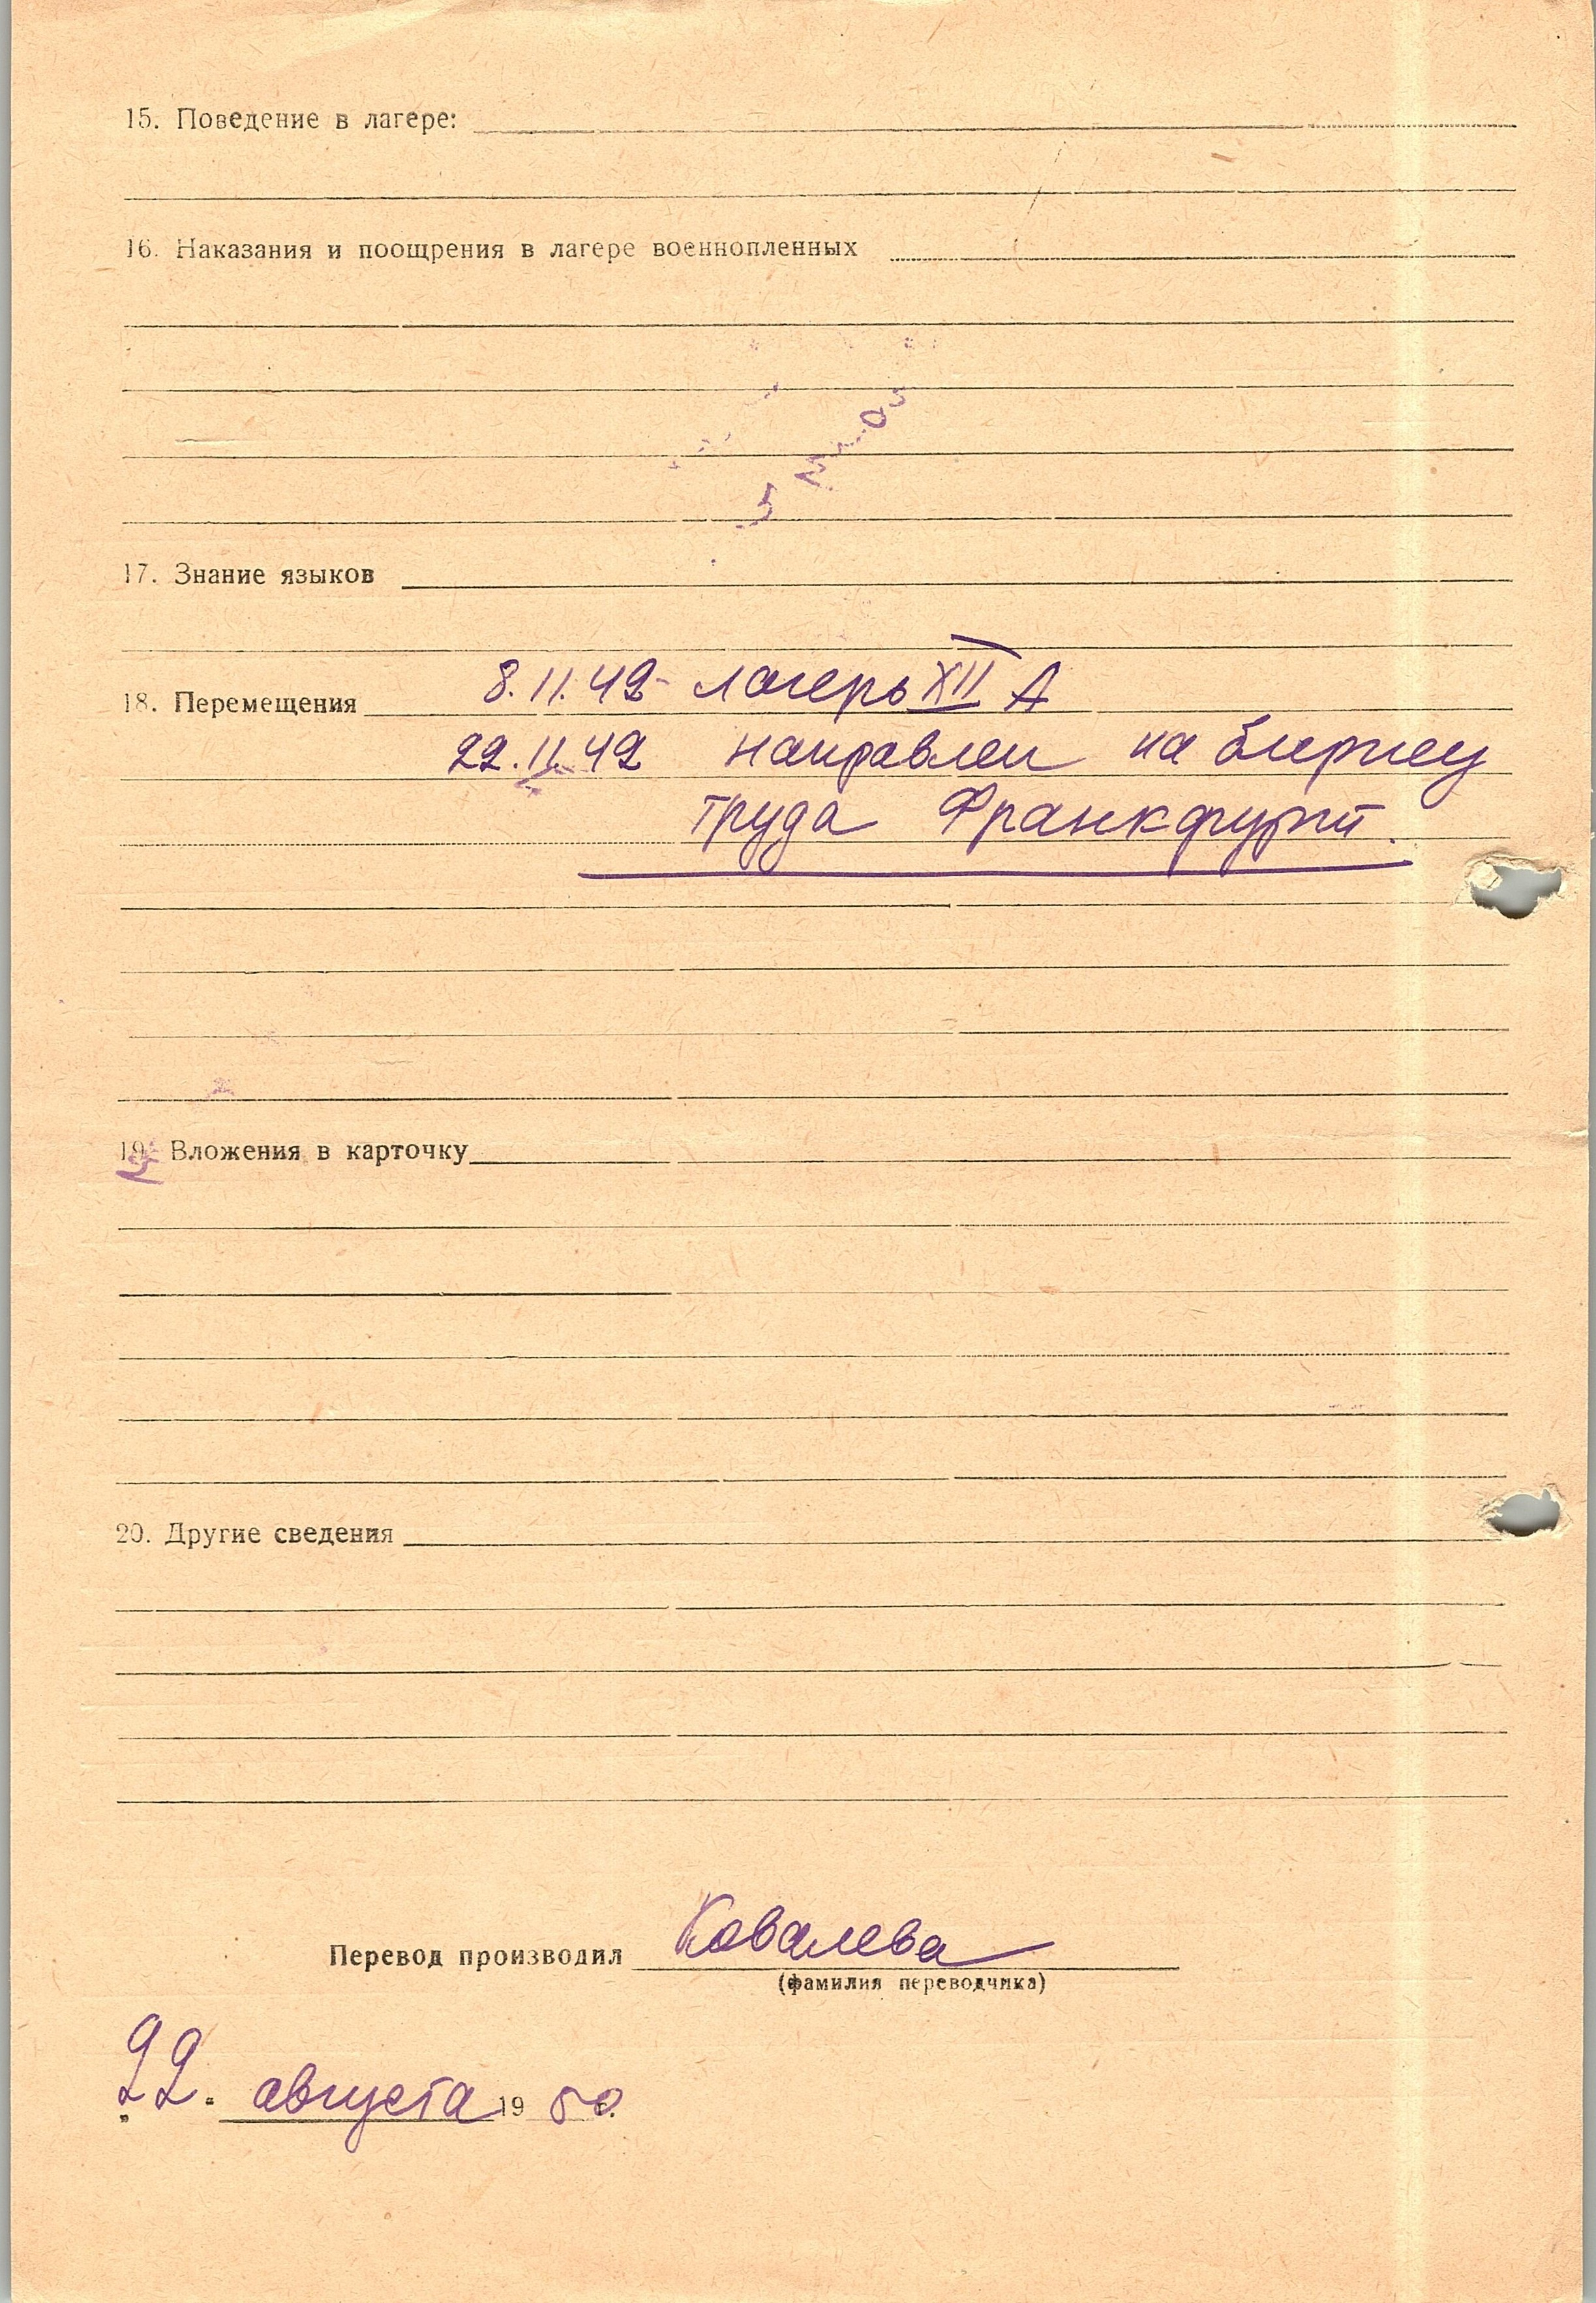 15. Поведение в лагере:
16. Наказания и поощрения в лагере военнопленных
17. Знание языков
18. Перемещения 8.11.42 - лагерь XII А
22.11.42 направлен на биржу
труда Франкфурт.
19. Вложения в карточку
20. Другие сведения
Перевод производил Ковалева
(фамилия переводчика)
"22" августа 1950.